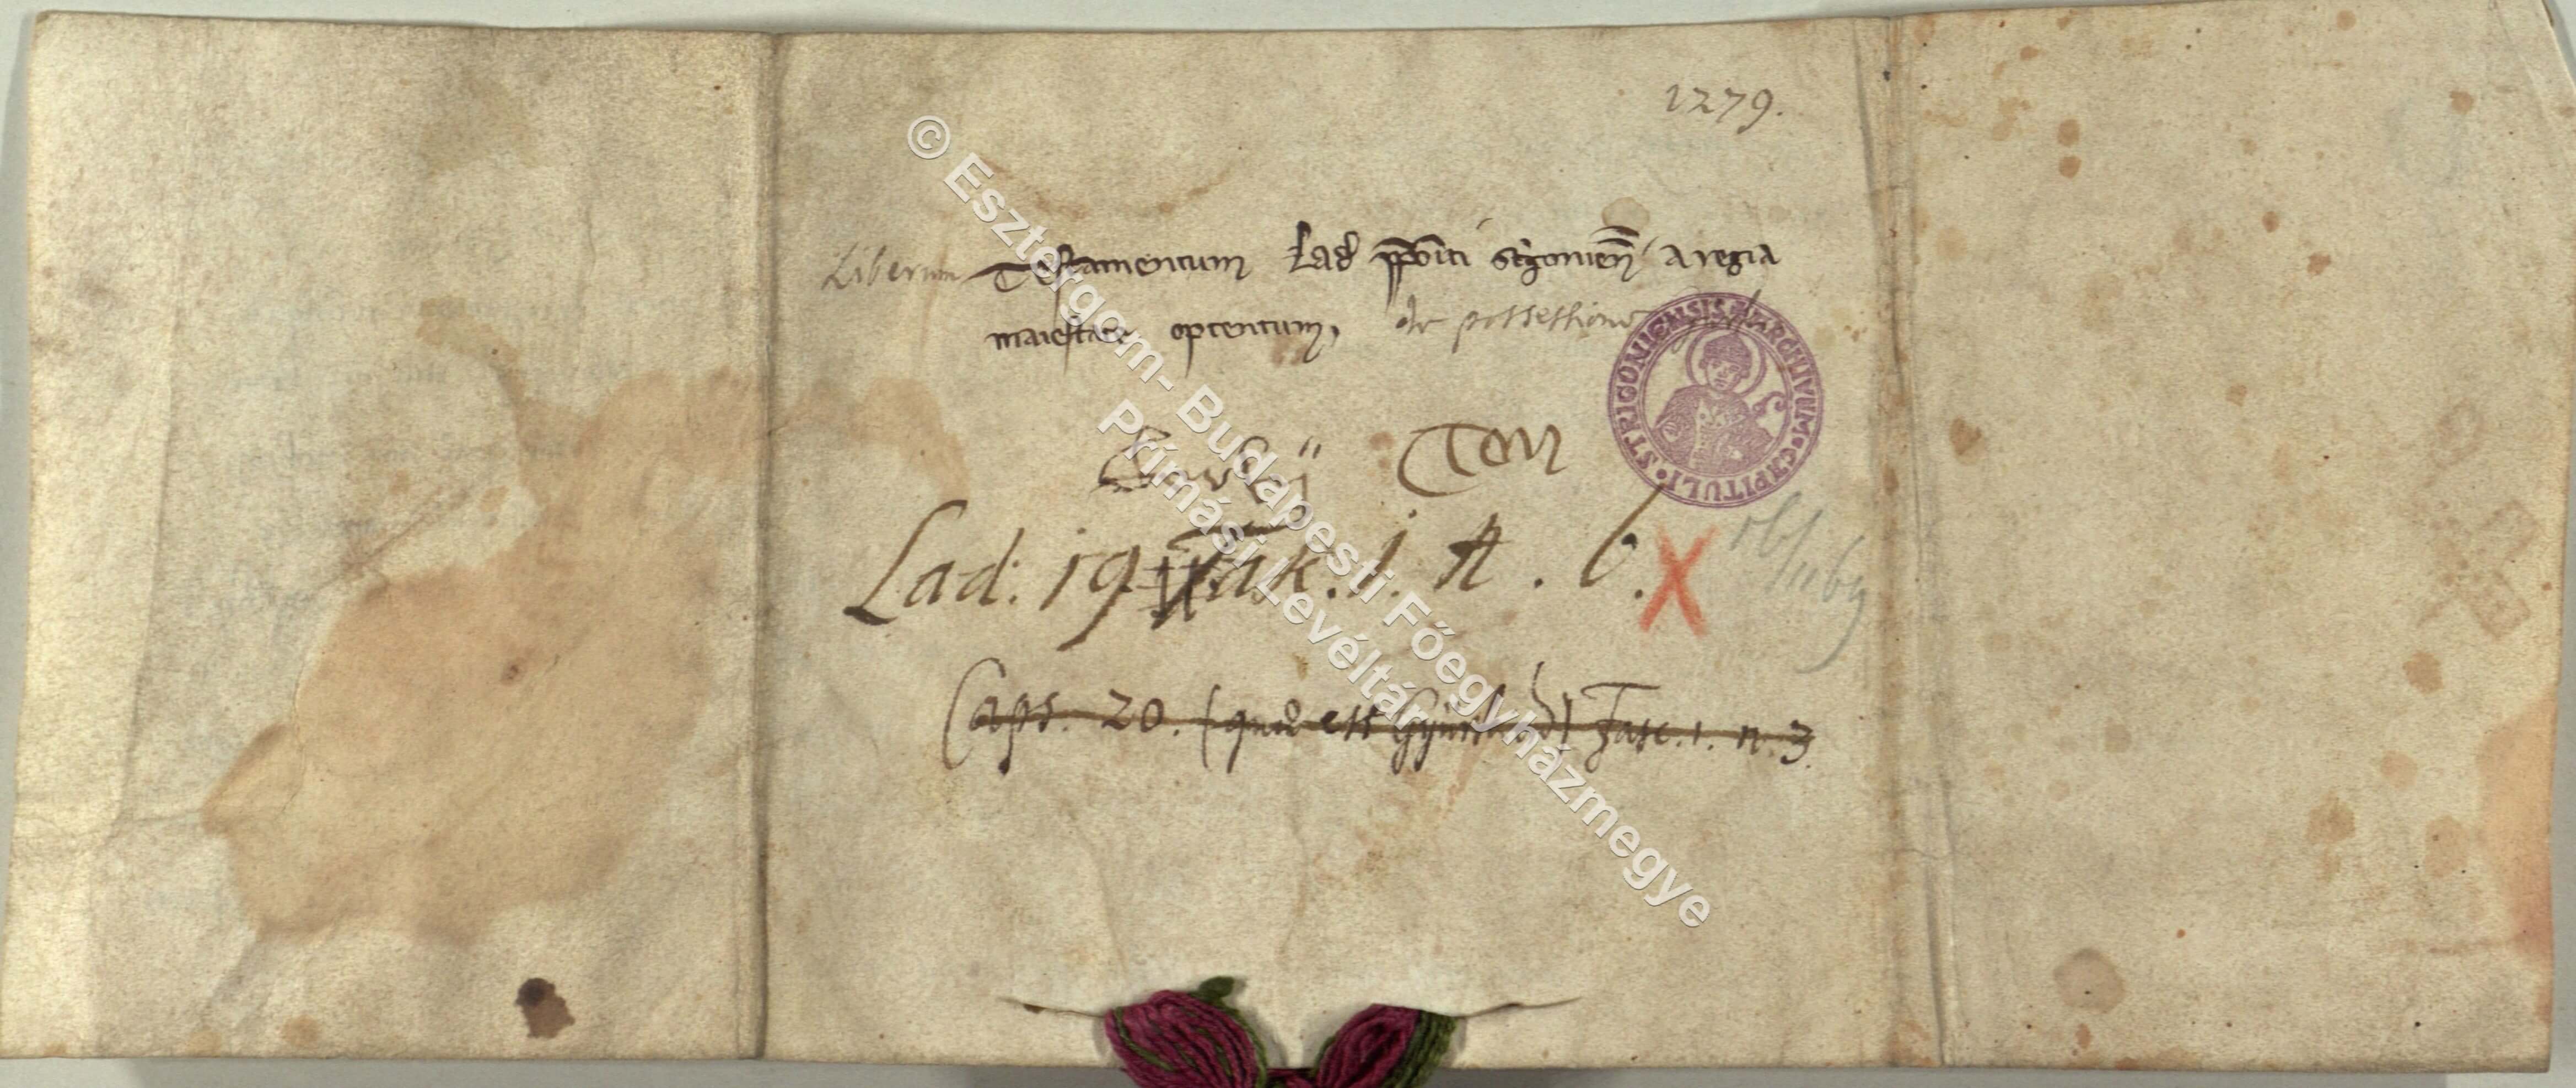 1279.
Liberum Testamentum Lad ppoiti strigonien a regia
maiestate optentum, de possessione
Lad: 19 fask. 1. n. 6. X
Caps. 20. (quae est Fasc. 1. n. 3.
STRIGONIENSIS ARCHIVUM CAPITULI
© Esztergom- Budapesti Főegyházmegye
Prímási Levéltár